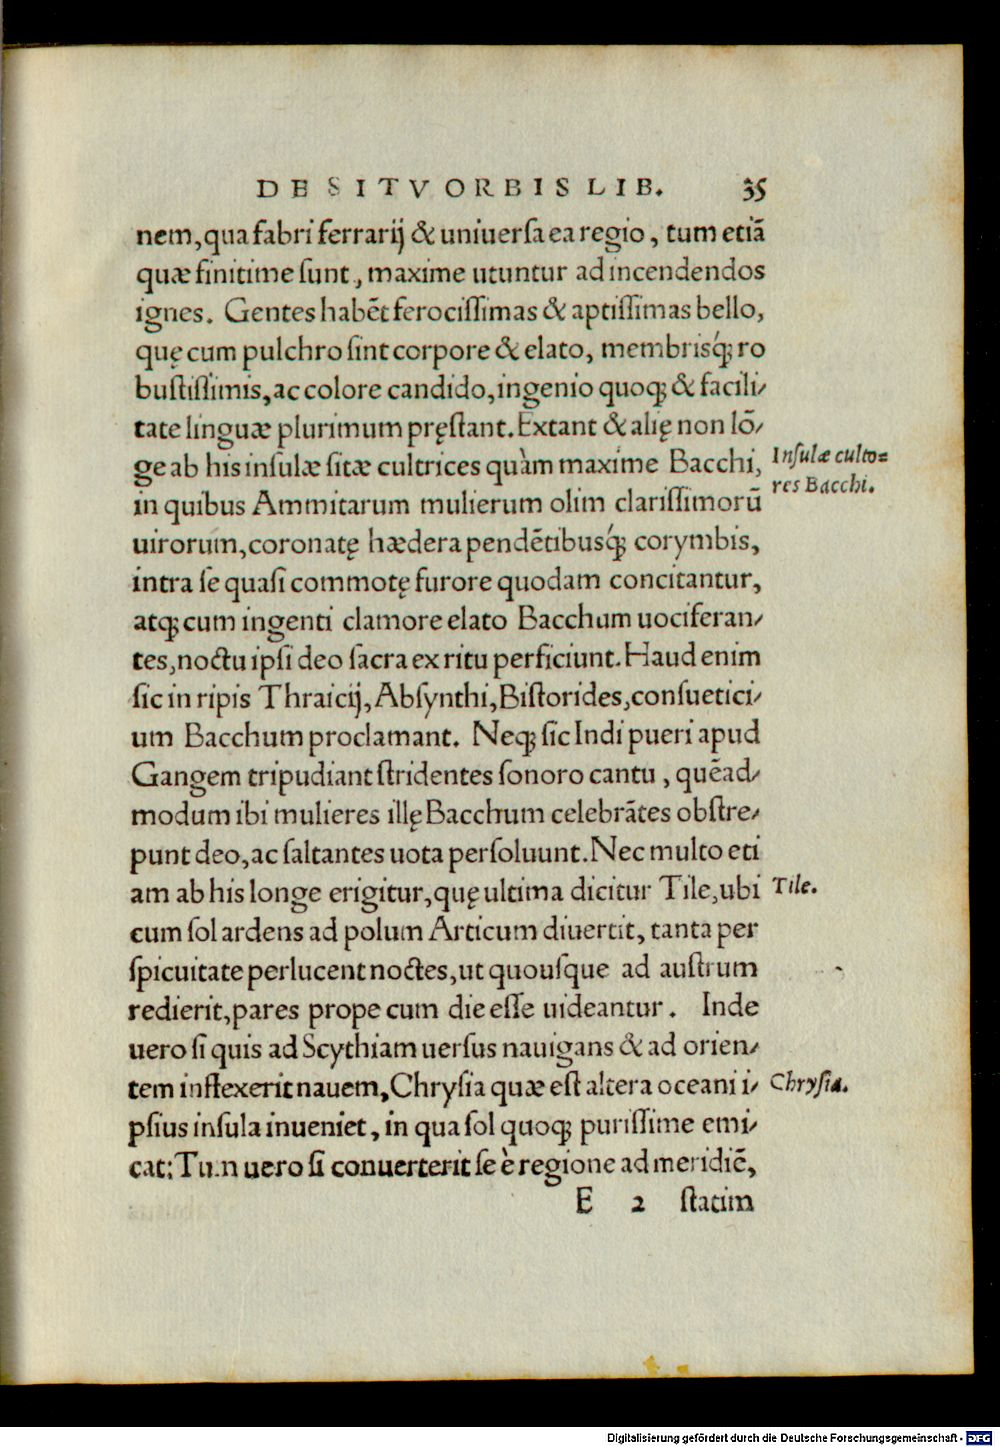 DE SITV ORBIS LIB. 35
nem, qua fabri ferrarij & uniuersa ea regio, tum etiā
quæ finitime sunt, maxime utuntur ad incendendos
ignes. Gentes habēt ferocissimas & aptissimas bello,
quę cum pulchro sint corpore & elato, membrisq́; ro
bustissimis, ac colore candido, ingenio quoq; & facili/
tate linguæ plurimum pręstant. Extant & alię non lō/
ge ab his insulæ sitæ cultrices quàm maxime Bacchi,
Insulæ culto=
res Bacchi.
in quibus Ammitarum mulierum olim clarissimorū
uirorum, coronatę hædera pendētibusq́; corymbis,
intra se quasi commotę furore quodam concitantur,
atq; cum ingenti clamore elato Bacchum uociferan/
tes, noctu ipsi deo sacra ex ritu perficiunt. Haud enim
sic in ripis Thraicij, Absynthi, Bistorides, consuetici/
um Bacchum proclamant. Neq; sic Indi pueri apud
Gangem tripudiant stridentes sonoro cantu, quēad/
modum ibi mulieres illę Bacchum celebrātes obstre/
punt deo, ac saltantes uota persoluunt. Nec multo eti
am ab his longe erigitur, quę ultima dicitur Tile, ubi
Tile.
cum sol ardens ad polum Articum diuertit, tanta per
spicuitate perlucent noctes, ut quousque ad austrum
redierit, pares prope cum die esse uideantur. Inde
uero si quis ad Scythiam uersus nauigans & ad orien/
tem inflexerit nauem, Chrysia quæ est altera oceani i/
Chrysia.
psius insula inueniet, in qua sol quoq; purissime emi/
cat: Tum uero si conuerterit se è regione ad meridiē,
E 2 statim
Digitalisierung gefördert durch die Deutsche Forschungsgemeinschaft - DFG